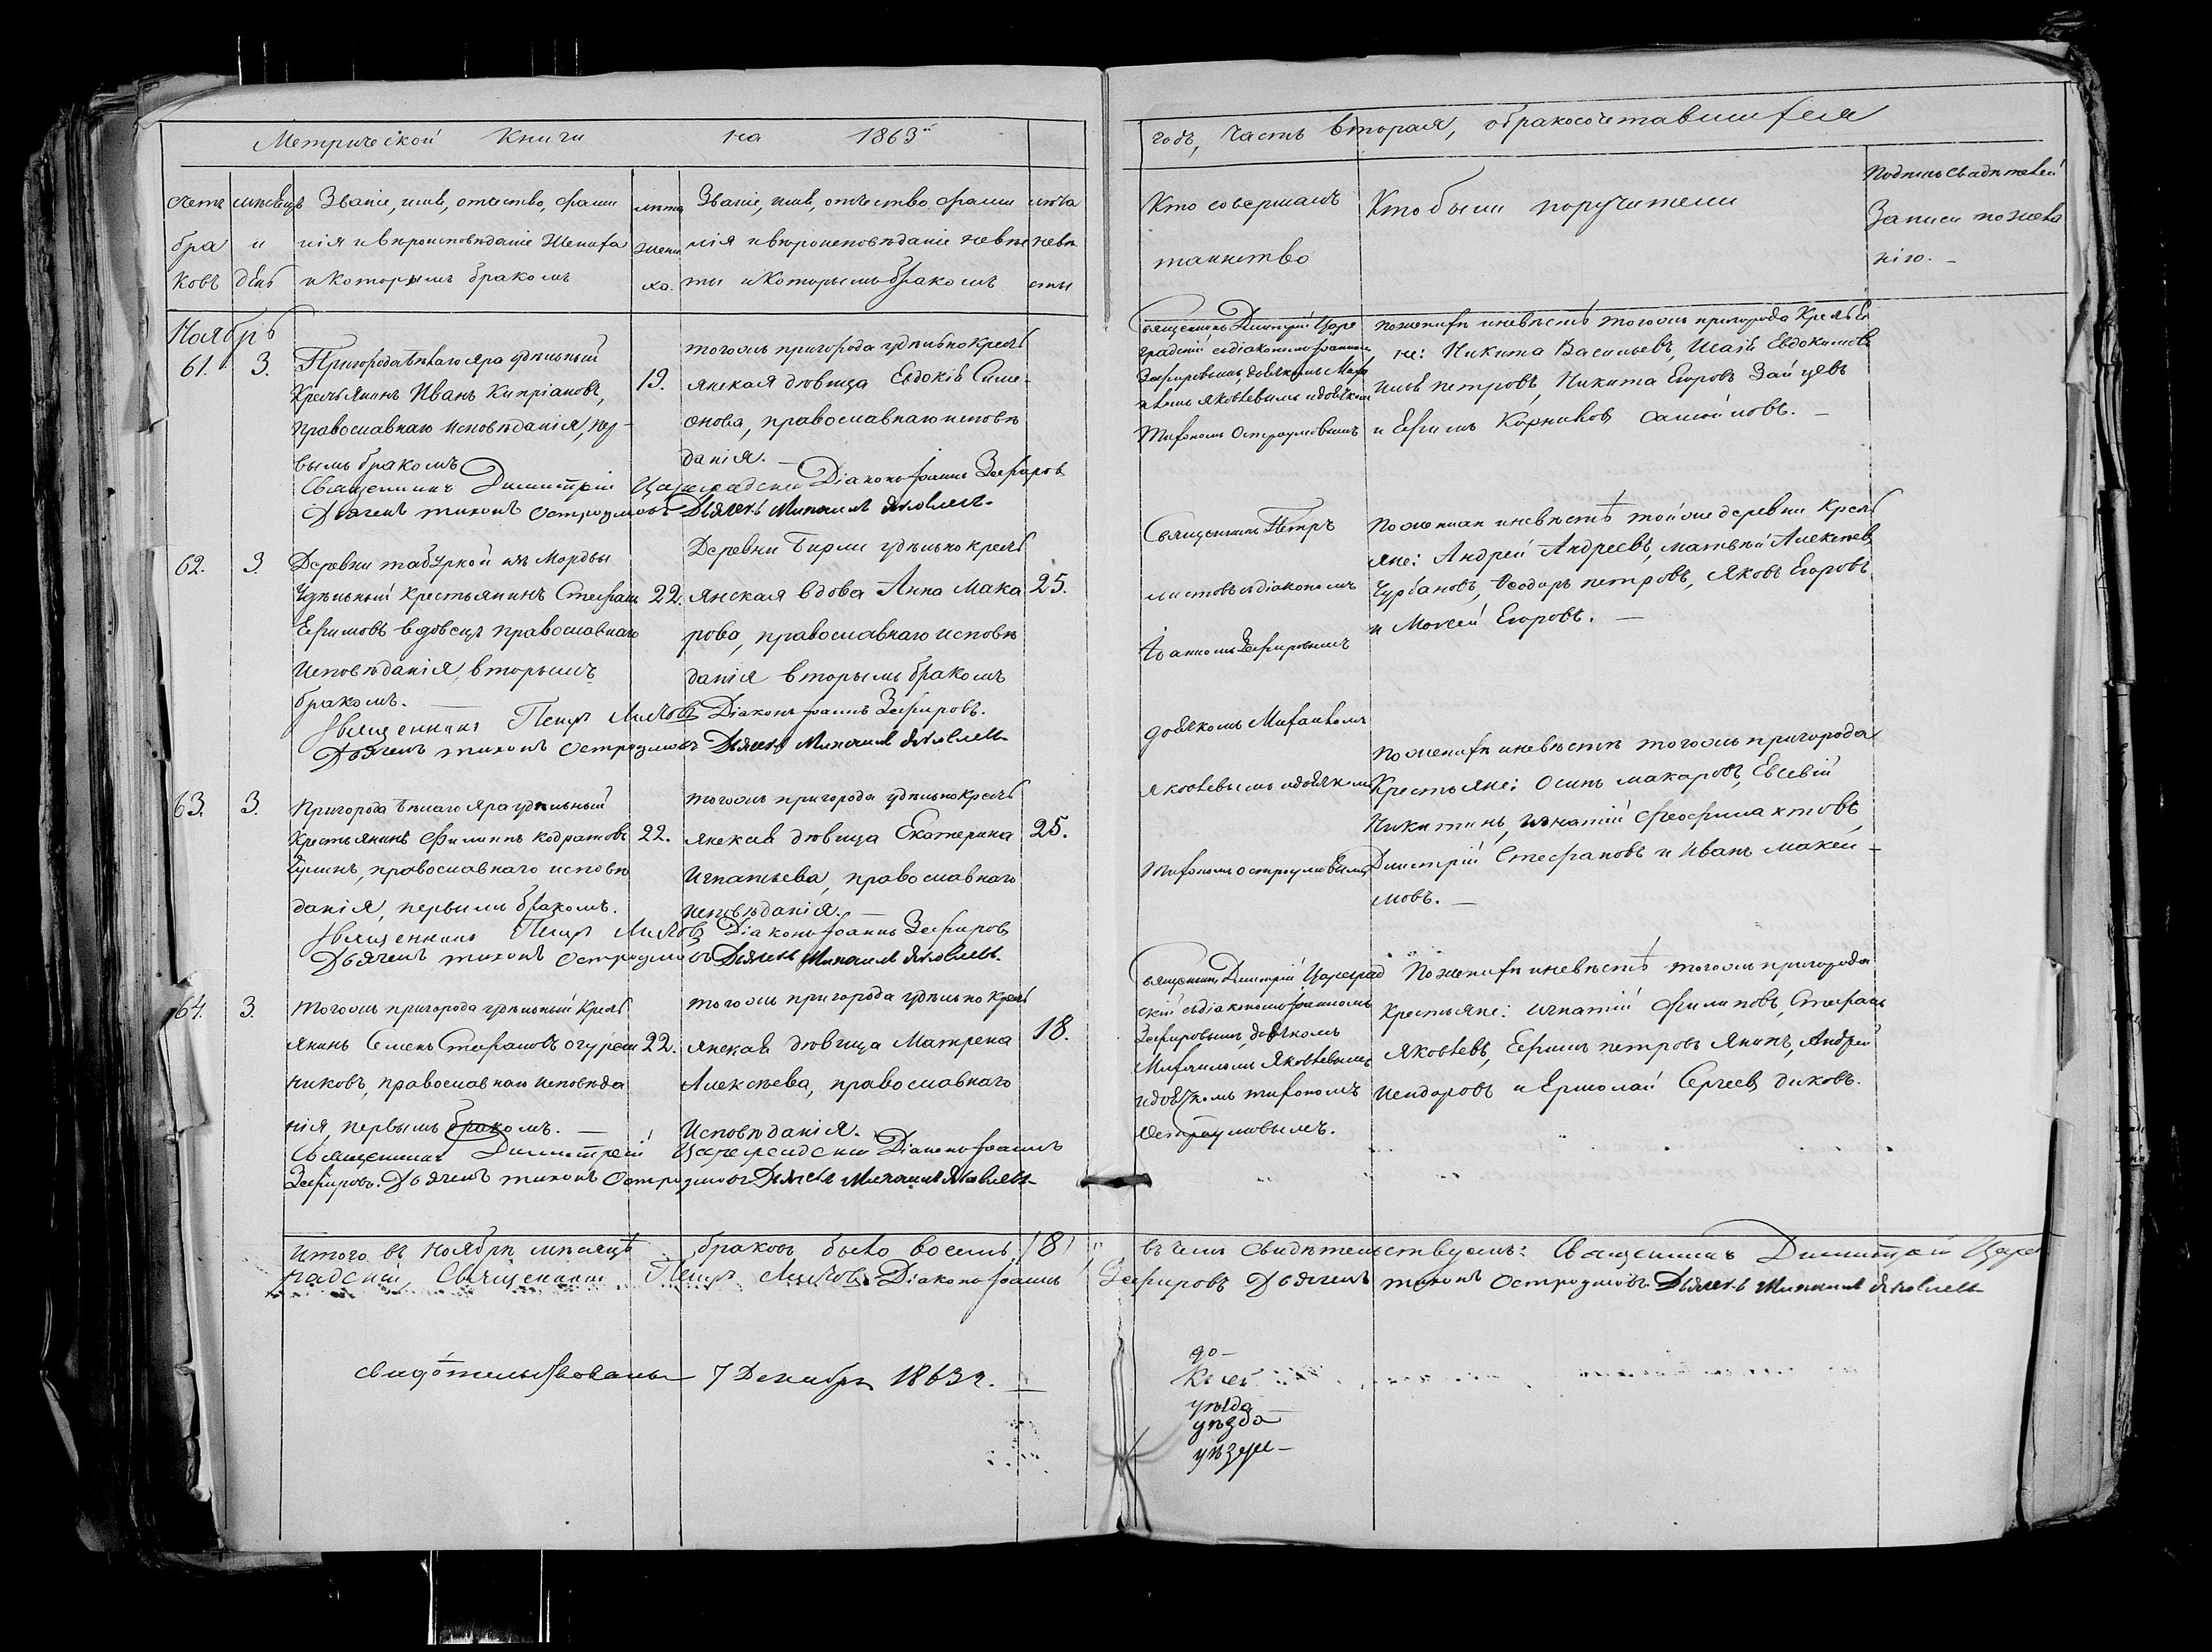 Метрической Книги на 1863й
годъ, часть вторая, о бракосочетавшихся
Счетъ бра ковъ
мѣсяцъ и день
Званіе, имя, отчество, фами
лія и вѣроисповѣданіе Жениха
и которымъ бракомъ
лѣта жени ха.
Званіе, имя, отчество фами
лія и вѣроисповѣданіе невѣс
ты и Которымъ бракомъ
лѣта невѣ сты
Кто совершалъ
таинство
Кто были поручители
Подпись свидѣтелей
Записи по жела
нію. –
Ноябрь
61. 3.
Пригорода Бѣлаго яра удѣльный
Крестьянинъ Иванъ Кипріановъ,
православнаго исповѣданія, пер-
вымъ бракомъ
19.
тогожъ пригорода удѣльно крест
янская дѣвица Евдокія Симе-
онова, православнаго исповѣ
данія. –
Священникъ Димитрій Цареградскій Діаконъ Іоаннъ Зефировъ
Дьячекъ Тихонъ Остроумовъ Дьячекъ Михаилъ Яковлевъ.
Священникъ Димитрій Царе
градскій съ діакономъ Іоанномъ
Зефировымъ, дьячкомъ Миха
иломъ Яковлевымъ и дьячкомъ
Тихономъ Остроумовымъ
по женихѣ и невѣстѣ тогожъ пригорода Крестья
не: Никита Васильевъ, Исаія Евдокимовъ
Илья петровъ, Никита Егоровъ Зайцевъ
и Ефимъ Корниловъ Самойловъ. –
62. 3.
Деревни табуркой изъ Мордвы
Удѣльный крестьянинъ Стефанъ
Ефимовъ вдовецъ православнаго
исповѣданія, вторымъ
бракомъ. –
22.
Деревни Бирли удѣльно крест
янская вдова Анна Мака
рова, православнаго исповѣ
данія вторымъ бракомъ
25.
Священникъ Петръ Листовъ Діаконъ Іоаннъ Зефировъ.
Дьячекъ Тихонъ Остроумовъ Дьячекъ Михаилъ Яковлевъ
Священникъ Петръ
Листовъ съ діакономъ
Іоанномъ Зефировымъ
дьячкомъ Михаиломъ
Яковлевымъ и дьячкомъ
Тихономъ Остроумовымъ
По женихѣ и невѣстѣ тойже деревни Крест
яне: Андрей Андреевъ, Матвѣй Алексѣевъ
Чурбановъ, Ѳеодоръ петровъ, Яковъ Егоровъ
и Моисей Егоровъ. –
63. 3.
Пригорода Бѣлаго яра удѣльный
Крестьянинъ Филиппъ Кодратовъ
православнаго исповѣ
данія, первымъ бракомъ.
22.
тогожъ пригорода удѣльно крест
янская дѣвица Екатерина
Игнатьева, православнаго
исповѣданія. –
25.
Священникъ Петръ Листовъ Діаконъ Іоаннъ Зефировъ
Дьячекъ Тихонъ Остроумовъ Дьячекъ Михаилъ Яковлевъ.
По женихѣ и невѣстѣ тогожъ пригорода
Крестьяне: Осипъ Макаровъ, Евсевій
Никитинъ, Игнатій Феофилактовъ,
Димитрій Стефановъ и Иванъ Макси-
мовъ. –
64. 3.
Тогожъ пригорода удѣльный Крест
янинъ Семенъ Стефановъ огуреш
никовъ, православнаго исповѣда
нія, первымъ бракомъ. –
22.
тогожъ пригорода удѣльно крест
янская дѣвица Матрена
Алексѣева, православнаго
Исповѣданія.
18.
Священникъ Димитрій Цареградскій Діаконъ Іоаннъ
Зефировъ. Дьячекъ Тихонъ Остроумовъ Дьячекъ Михаилъ Яковлевъ
Священникъ Димитрій Цареград
скій съ діакономъ Іоанномъ
Зефировымъ, дьячкомъ
Михаиломъ Яковлевымъ
и дьячкомъ Тихономъ
Остроумовымъ.
По женихѣ и невѣстѣ тогожъ пригорода
Крестьяне: Игнатій Филиповъ, Стефанъ
Яковлевъ, Ефимъ петровъ Янинъ, Андрей
Исидоровъ и Ермолай Сергеевъ диковъ.
Итого въ ноябрѣ мѣсяцѣ браковъ было восемь (8) въ чемъ свидѣтельствуемъ: Священникъ Димитрій Царе
градскій, Священникъ Петръ Листовъ Діаконъ Іоаннъ Зефировъ Дьячекъ Тихонъ Остроумовъ Дьячекъ Михаилъ Яковлевъ
свидѣтельствованы 7 Декабря 1863 г.
до –
уѣзда
уѣзда